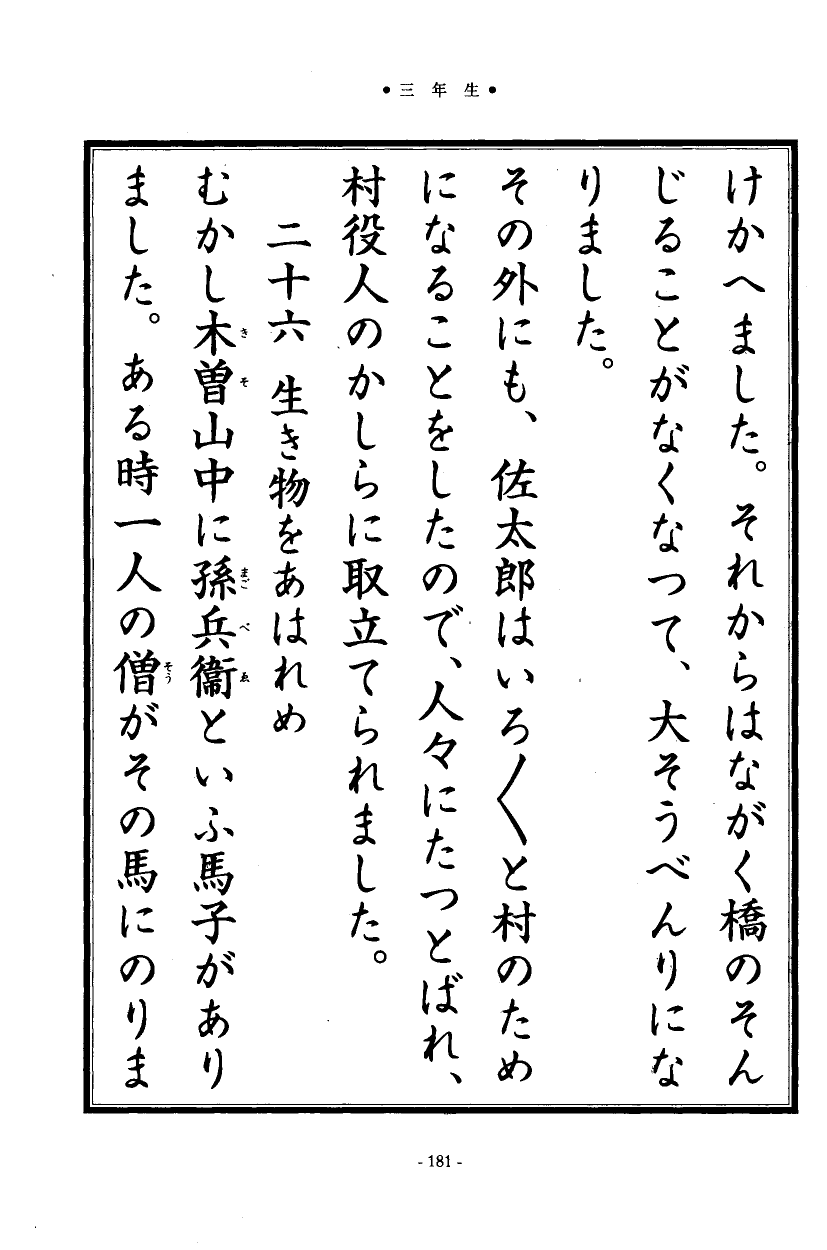 ●三年生●
けかへました。それからはながく橋のそん
じることがなくなつて、大そうべんりにな
りました。
その外にも、佐太郎はいろ〱と村のため
になることをしたので、人々にたつとばれ、
村役人のかしらに取立てられました。
二十六 生き物をあはれめ
むかし木曽山中に孫兵衞といふ馬子があり
きそ まごべゑ
ました。ある時一人の僧がその馬にのりま
そう
- 181 -